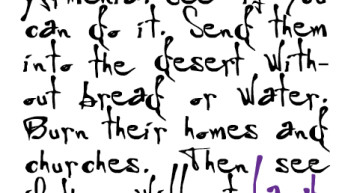 see if you
can do it. Send them
into the desert with-
out bread or water.
Burn their homes and
churches. Then see